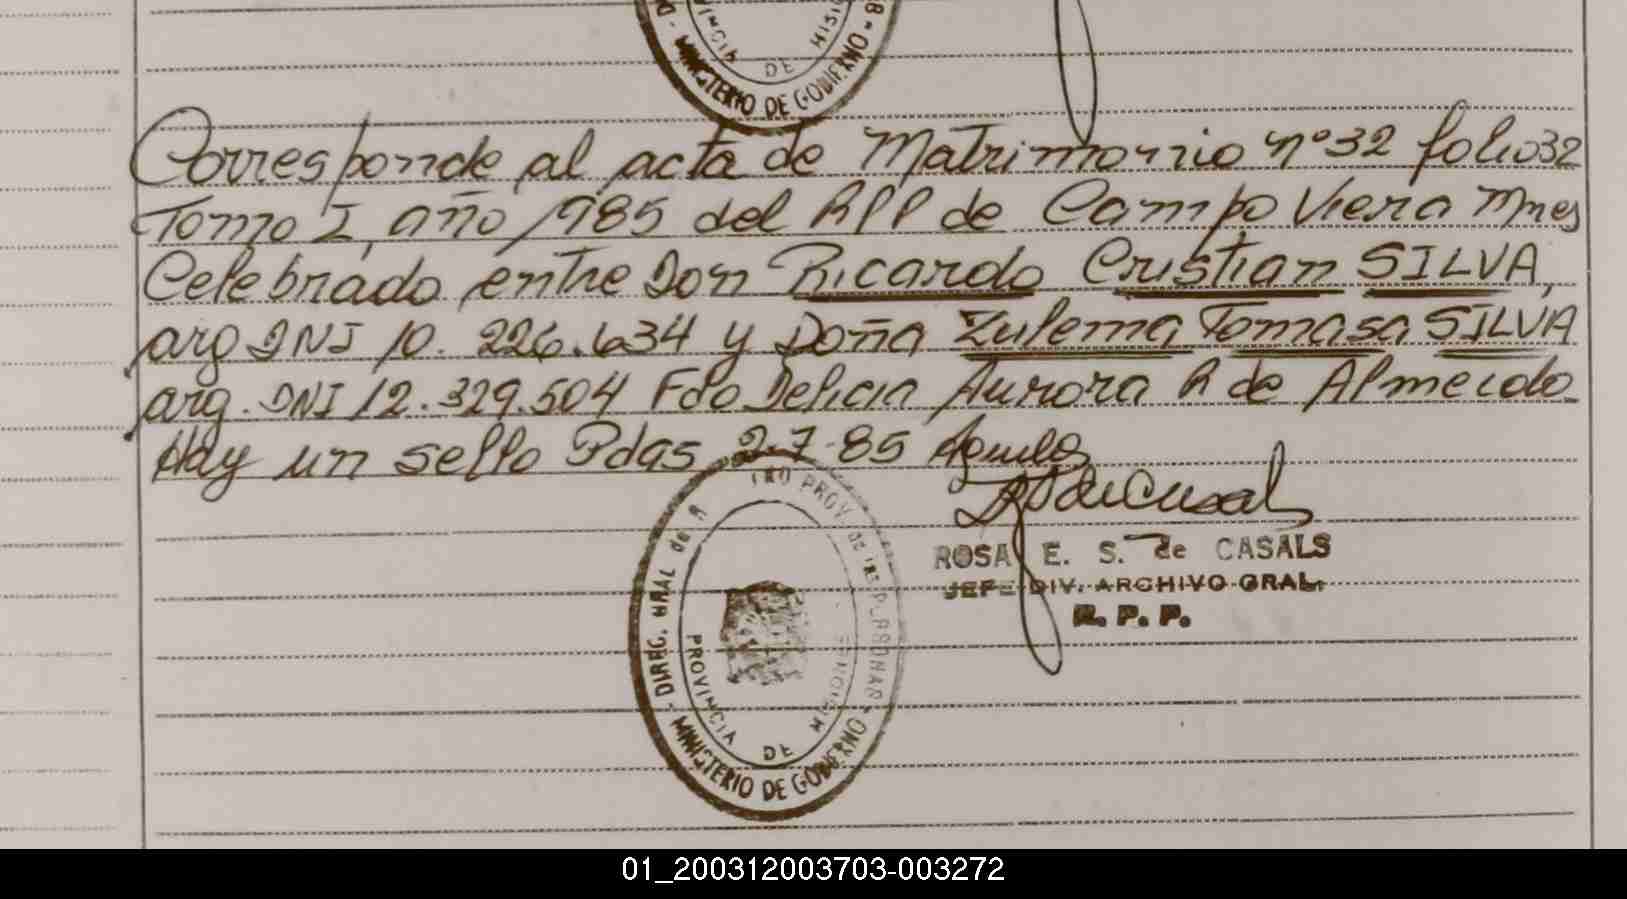 PROVINCIA DE MISIO
MINISTERIO DE GOBIERNO
Corresponde al acta de Matrimonio nº 32 folio 32
Tomo I, año 1985 del RPP de Campo Viera Mnes
Celebrado entre Don Ricardo Cristian SILVA,
arg DNI 10.226.634 y Doña Zulema Tomasa SILVA
arg. DNI 12.329.504 Fdo Delicia Aurora R de Almeida
Hay un sello Pdas 2-7-85 Aguila
ROSA E. S. de CASALS
JEFE DIV. ARCHIVO GRAL.
R. P. P.
DIREC. GRAL de PROV de las PERSONAS
PROVINCIA DE MISIONES
MINISTERIO DE GOBIERNO
01_200312003703-003272